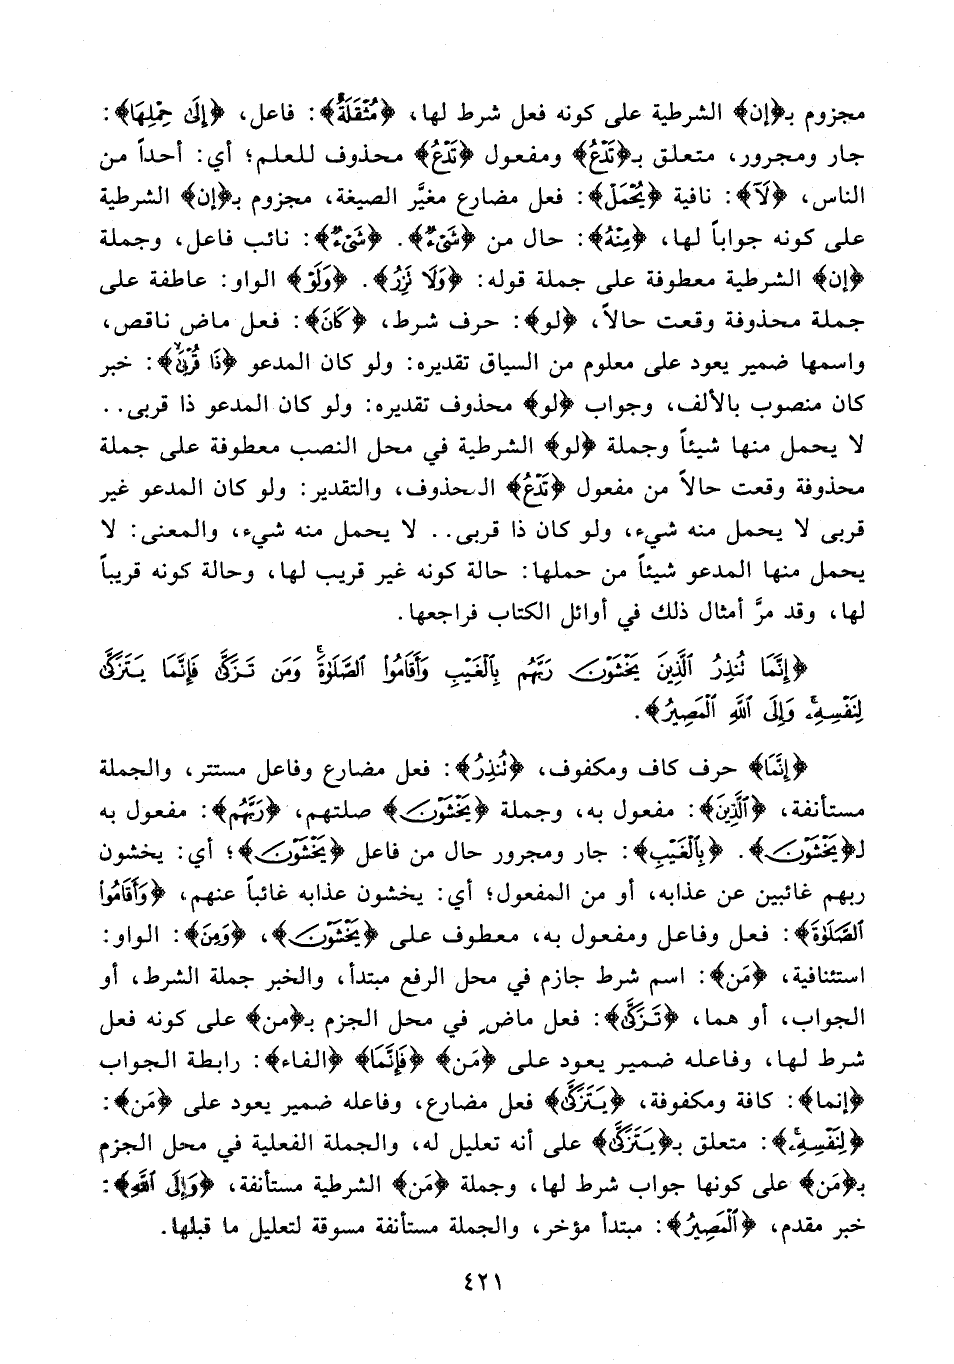 مجزوم بـ﴿إن﴾ الشرطية على كونه فعل شرط لها، ﴿مُثْقَلَةٌ﴾: فاعل، ﴿إِلَىٰ حِمْلِهَا﴾:
جار ومجرور، متعلق بـ﴿تَدْعُ﴾ ومفعول ﴿تَدْعُ﴾ محذوف للعلم؛ أي: أحداً من
الناس، ﴿لَا﴾: نافية ﴿يُحْمَلْ﴾: فعل مضارع مغيَّر الصيغة، مجزوم بـ﴿إن﴾ الشرطية
على كونه جواباً لها، ﴿مِنْهُ﴾: حال من ﴿شَيْءٌ﴾. ﴿شَيْءٌ﴾: نائب فاعل، وجملة
﴿إن﴾ الشرطية معطوفة على جملة قوله: ﴿وَلَا نَزِرُ﴾. ﴿وَلَوْ﴾ الواو: عاطفة على
جملة محذوفة وقعت حالاً، ﴿لو﴾: حرف شرط، ﴿كَانَ﴾: فعل ماض ناقص،
واسمها ضمير يعود على معلوم من السياق تقديره: ولو كان المدعو ﴿ذَا قُرْبَىٰ﴾: خبر
كان منصوب بالألف، وجواب ﴿لو﴾ محذوف تقديره: ولو كان المدعو ذا قربى..
لا يحمل منها شيئاً وجملة ﴿لو﴾ الشرطية في محل النصب معطوفة على جملة
محذوفة وقعت حالاً من مفعول ﴿تَدْعُ﴾ المحذوف، والتقدير: ولو كان المدعو غير
قربى لا يحمل منه شيء، ولو كان ذا قربى.. لا يحمل منه شيء، والمعنى: لا
يحمل منها المدعو شيئاً من حملها: حالة كونه غير قريب لها، وحالة كونه قريباً
لها، وقد مرَّ أمثال ذلك في أوائل الكتاب فراجعها.
﴿إِنَّمَا نُنذِرُ ٱلَّذِينَ يَخْشَوْنَ رَبَّهُم بِٱلْغَيْبِ وَأَقَامُوا۟ ٱلصَّلَوٰةَ ۚ وَمَن تَزَكَّىٰ فَإِنَّمَا يَتَزَكَّىٰ
لِنَفْسِهِۦ ۚ وَإِلَى ٱللَّهِ ٱلْمَصِيرُ﴾.
﴿إِنَّمَا﴾ حرف كاف ومكفوف، ﴿نُنذِرُ﴾: فعل مضارع وفاعل مستتر، والجملة
مستأنفة، ﴿ٱلَّذِينَ﴾: مفعول به، وجملة ﴿يَخْشَوْنَ﴾ صلتهم، ﴿رَبَّهُم﴾: مفعول به
لـ﴿يَخْشَوْنَ﴾. ﴿بِٱلْغَيْبِ﴾: جار ومجرور حال من فاعل ﴿يَخْشَوْنَ﴾؛ أي: يخشون
ربهم غائبين عن عذابه، أو من المفعول؛ أي: يخشون عذابه غائباً عنهم، ﴿وَأَقَامُوا۟
ٱلصَّلَوٰةَ﴾: فعل وفاعل ومفعول به، معطوف على ﴿يَخْشَوْنَ﴾، ﴿وَمَن﴾: الواو:
استئنافية، ﴿مَن﴾: اسم شرط جازم في محل الرفع مبتدأ، والخبر جملة الشرط، أو
الجواب، أو هما، ﴿تَزَكَّىٰ﴾: فعل ماضٍ في محل الجزم بـ﴿من﴾ على كونه فعل
شرط لها، وفاعله ضمير يعود على ﴿مَن﴾ ﴿فَإِنَّمَا﴾ ﴿الفاء﴾: رابطة الجواب
﴿إنما﴾: كافة ومكفوفة، ﴿يَتَزَكَّىٰ﴾ فعل مضارع، وفاعله ضمير يعود على ﴿مَن﴾:
﴿لِنَفْسِهِۦ﴾: متعلق بـ﴿يَتَزَكَّىٰ﴾ على أنه تعليل له، والجملة الفعلية في محل الجزم
بـ﴿مَن﴾ على كونها جواب شرط لها، وجملة ﴿مَن﴾ الشرطية مستأنفة، ﴿وَإِلَى ٱللَّهِ﴾:
خبر مقدم، ﴿ٱلْمَصِيرُ﴾: مبتدأ مؤخر، والجملة مستأنفة مسوقة لتعليل ما قبلها.
٤٢١